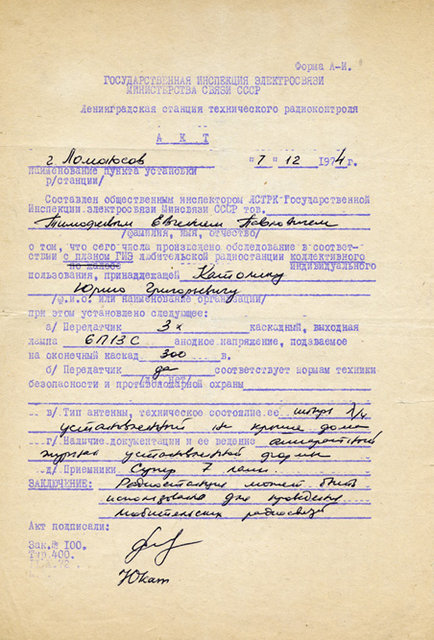 Форма А-И.
ГОСУДАРСТВЕННАЯ ИНСПЕКЦИЯ ЭЛЕКТРОСВЯЗИ
МИНИСТЕРСТВА СВЯЗИ СССР
Ленинградская станция технического радиоконтроля
А К Т
г. Ломоносов "7" 12 1974 г.
наименование пункта установки
р/станции/
Составлен общественным инспектором ЛСТРК Государственной
Инспекции электросвязи Минсвязи СССР тов.
Тимофеевым Евгением Павловичем
/фамилия, имя, отчество/
о том, что сего числа произведено обследование в соответ-
ствии с планом ГИЭ любительской радиостанции коллективного
индивидуального
пользования, принадлежащей
Юрию Григорьевичу
/ф.и.о. или наименование организации/
при этом установлено следующее:
а/ Передатчик 3х каскадный, выходная
лампа 6П13С анодное напряжение, подаваемое
на оконечный каскад 300 в.
б/ Передатчик да соответствует нормам техники
/да, нет/
безопасности и противопожарной охраны
в/ Тип антенны, техническое состояние ее штырь λ/4
установленный на крыше дома
г/ Наличие документации и ее ведение аппаратный
журнал установленной формы
д/ Приемники Супер 7 ламп.
ЗАКЛЮЧЕНИЕ: Радиостанция может быть
использована для проведения
любительских радиосвязей
Акт подписали:
Зак.№ 100.
Тир.400.
Юкат